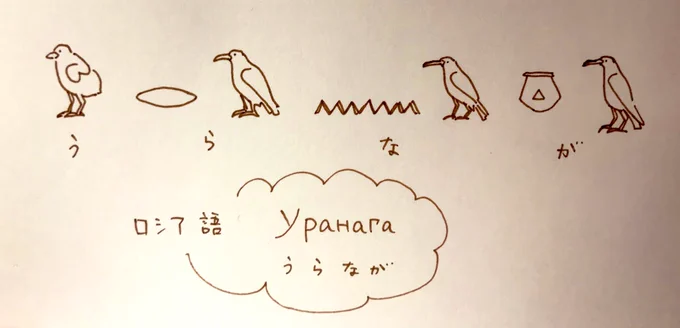 𓅱 𓂋 𓄿 𓈖 𓄿 𓎼 𓄿
う ら な が
ロシア語 Уранага
うらなが